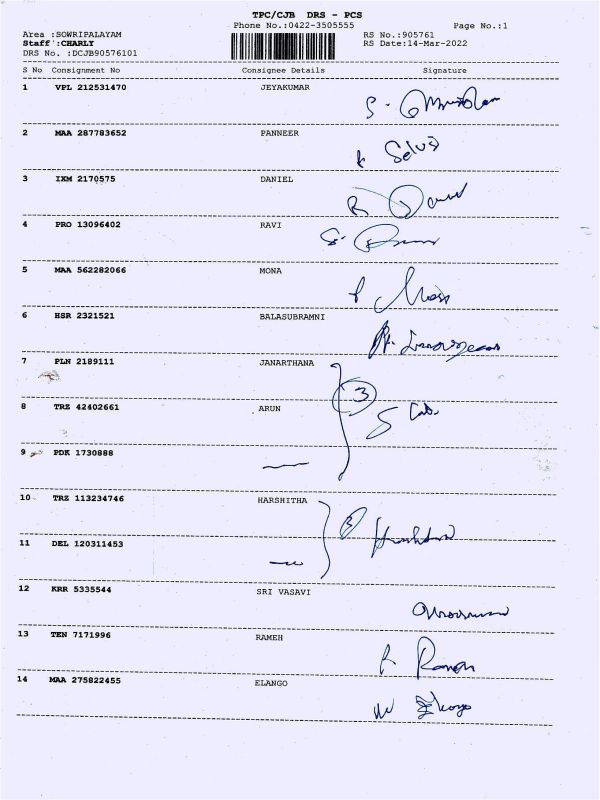 TPC/CJB DRS - PCS
Phone No.:0422-3505555 Page No.:1
Area :SOWRIPALAYAM RS No.:905761
Staff :CHARLY RS Date:14-Mar-2022
DRS No. :DCJB90576101
S No Consignment No Consignee Details Signature
1 VPL 212531470 JEYAKUMAR
2 MAA 287783652 PANNEER
K Selvi
3 IXM 2170575 DANIEL
4 PRO 13096402 RAVI
5 MAA 562282066 MONA
6 HSR 2321521 BALASUBRAMNI
7 PLN 2189111 JANARTHANA
3
8 TRZ 42402661 ARUN
9 PDK 1730888
10 TRZ 113234746 HARSHITHA
11 DEL 120311453
12 KRR 5335544 SRI VASAVI
13 TEN 7171996 RAMEH
14 MAA 275822455 ELANGO